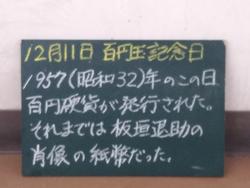 12月11日 百円玉記念日
1957(昭和32)年のこの日
百円硬貨が発行された。
それまでは板垣退助の
肖像の紙幣だった。